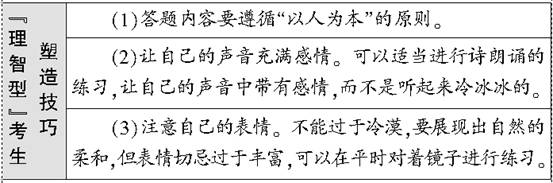 『理智型』考生
塑造技巧
(1)答题内容要遵循“以人为本”的原则。
(2)让自己的声音充满感情。可以适当进行诗朗诵的
练习,让自己的声音中带有感情,而不是听起来冷冰冰的。
(3)注意自己的表情。不能过于冷漠,要展现出自然的
柔和,但表情切忌过于丰富,可以在平时对着镜子进行练习。